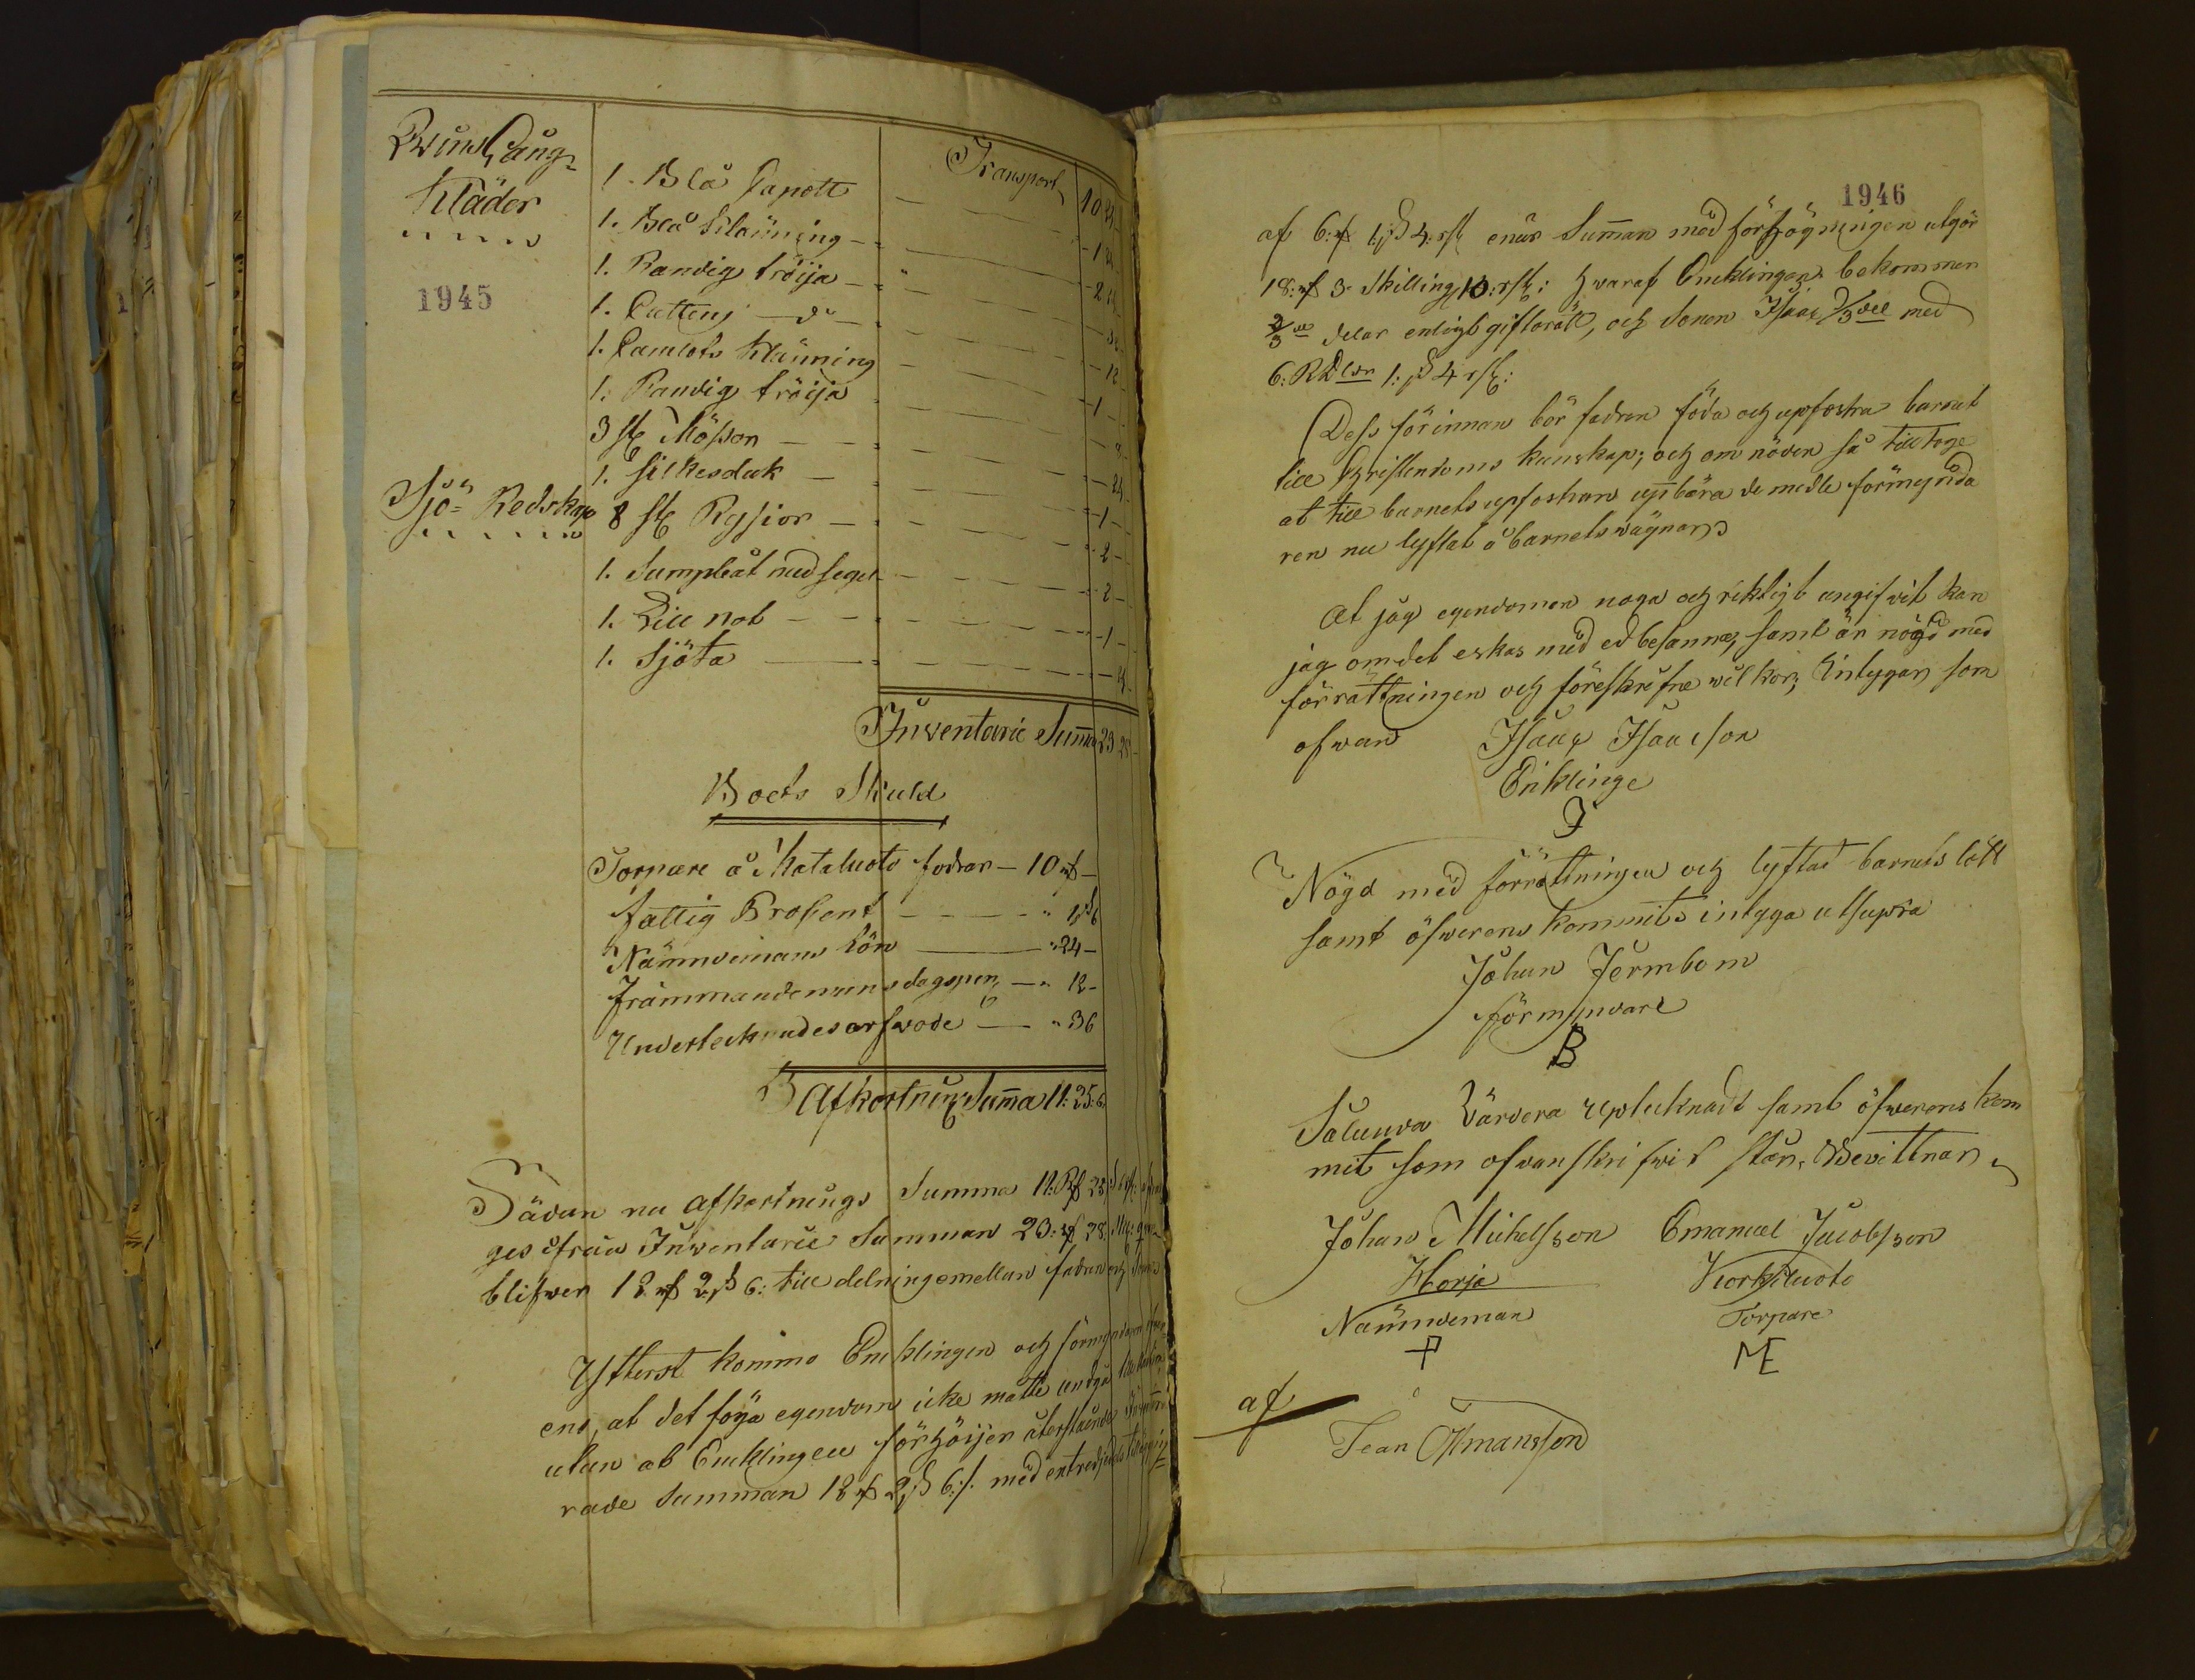 Transport
Kläder
1. Blå Capott
1. Blå Kläning
1. Randig tröija
1945
1. Cattens do
1. Camlots Kläning
1. Randig tröija
3 st Mössor
1. silkesduk
Sjö=Redskap
8 st Rysior
1. Sumpbåt med segel
1. Lill not
1. Sjöta
Inventarie Summa 23 28
Boets Skuld
Torpare å Kataluoto fodrar — 10 rd —
fattig Prosent
Nämndemans lön — 24 —
främmande mans dagspen — 12 —
Undertecknades arfwode — 36
Afkortnings Summa 11:25:6
Sådan nu afkortnings Summa 11:
ges ifrån Inventarie Summan 23: 28
blifwer 12 2 ß 6: till delning emellan fadren och
Ytterst kommo Enklingen och förmyndaren
ens, at det foga egendom icke måtte undgå
utan at Enklingen förhöijer återstående
rade Summan 12 2 ß 6:/. med en tredjedels
1946
af 6: 1 ß 4: enär Summan med förhögningen utgör
18: 3 Skilling 10: hwaraf Encklingen bekommer
2/3 delar enligt giftorätt, och Sonen Isaac 1/3 del med
6: RDlr 1: ß 4
Dess förinnan bör fadren föda och upfostra barnet
till Christendoms kunskap; och om nöden så tilltoge
at till barnets upfostran upbära de medle förmynda
ren nu lyftat å barnets wägnar
At jag egendomen noga och riktigt angifwit kan
jag om det eskas med ed besanna, samt är nögd med
förrättningen och föreskrefne wilkor; Intygar som
ofwan
Isaac Isacsson
Enklinge
I
Nögd med förrättningen och lyftad barnets lott
samt öfwerens kommits intyga utsupra
Johan Jermbom
förmyndare
B
Sålunda Värdera uptecknadt samt öfwerenskom
mit som ofwanskrifwit står, Bewittnar
Johan Michelsson
Emanuel Jacobsson
Korja
Korkiluoto
Nämndeman
Torpare
ME
af
Jean Öhmansson